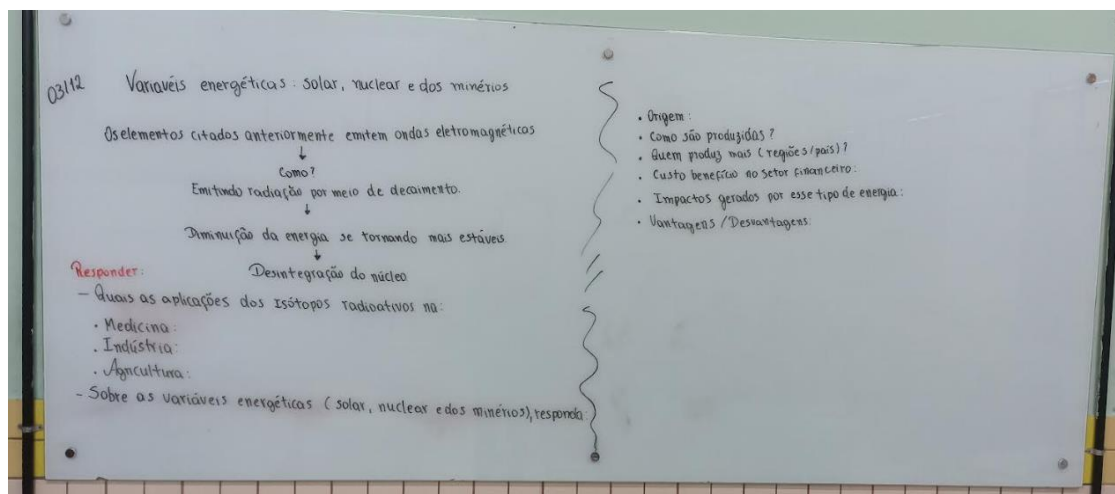 03/12 Variavéis energéticas: solar, nuclear e dos minérios
Os elementos citados anteriormente emitem ondas eletromagnéticas
↓
Como?
Emitindo radiação por meio de decaimento.
↓
Diminuição da energia se tornando mais estáveis
↓
Desintegração do núcleo
Responder:
- Quais as aplicações dos Isótopos radioativos na:
. Medicina:
. Indústria:
. Agricultura:
- Sobre as variáveis energéticas (solar, nuclear e dos minérios), responda:
• Origem:
• Como são produzidas?
• Quem produz mais (regiões/país)?
• Custo benefício no setor financeiro:
• Impactos gerados por esse tipo de energia:
• Vantagens / Desvantagens: